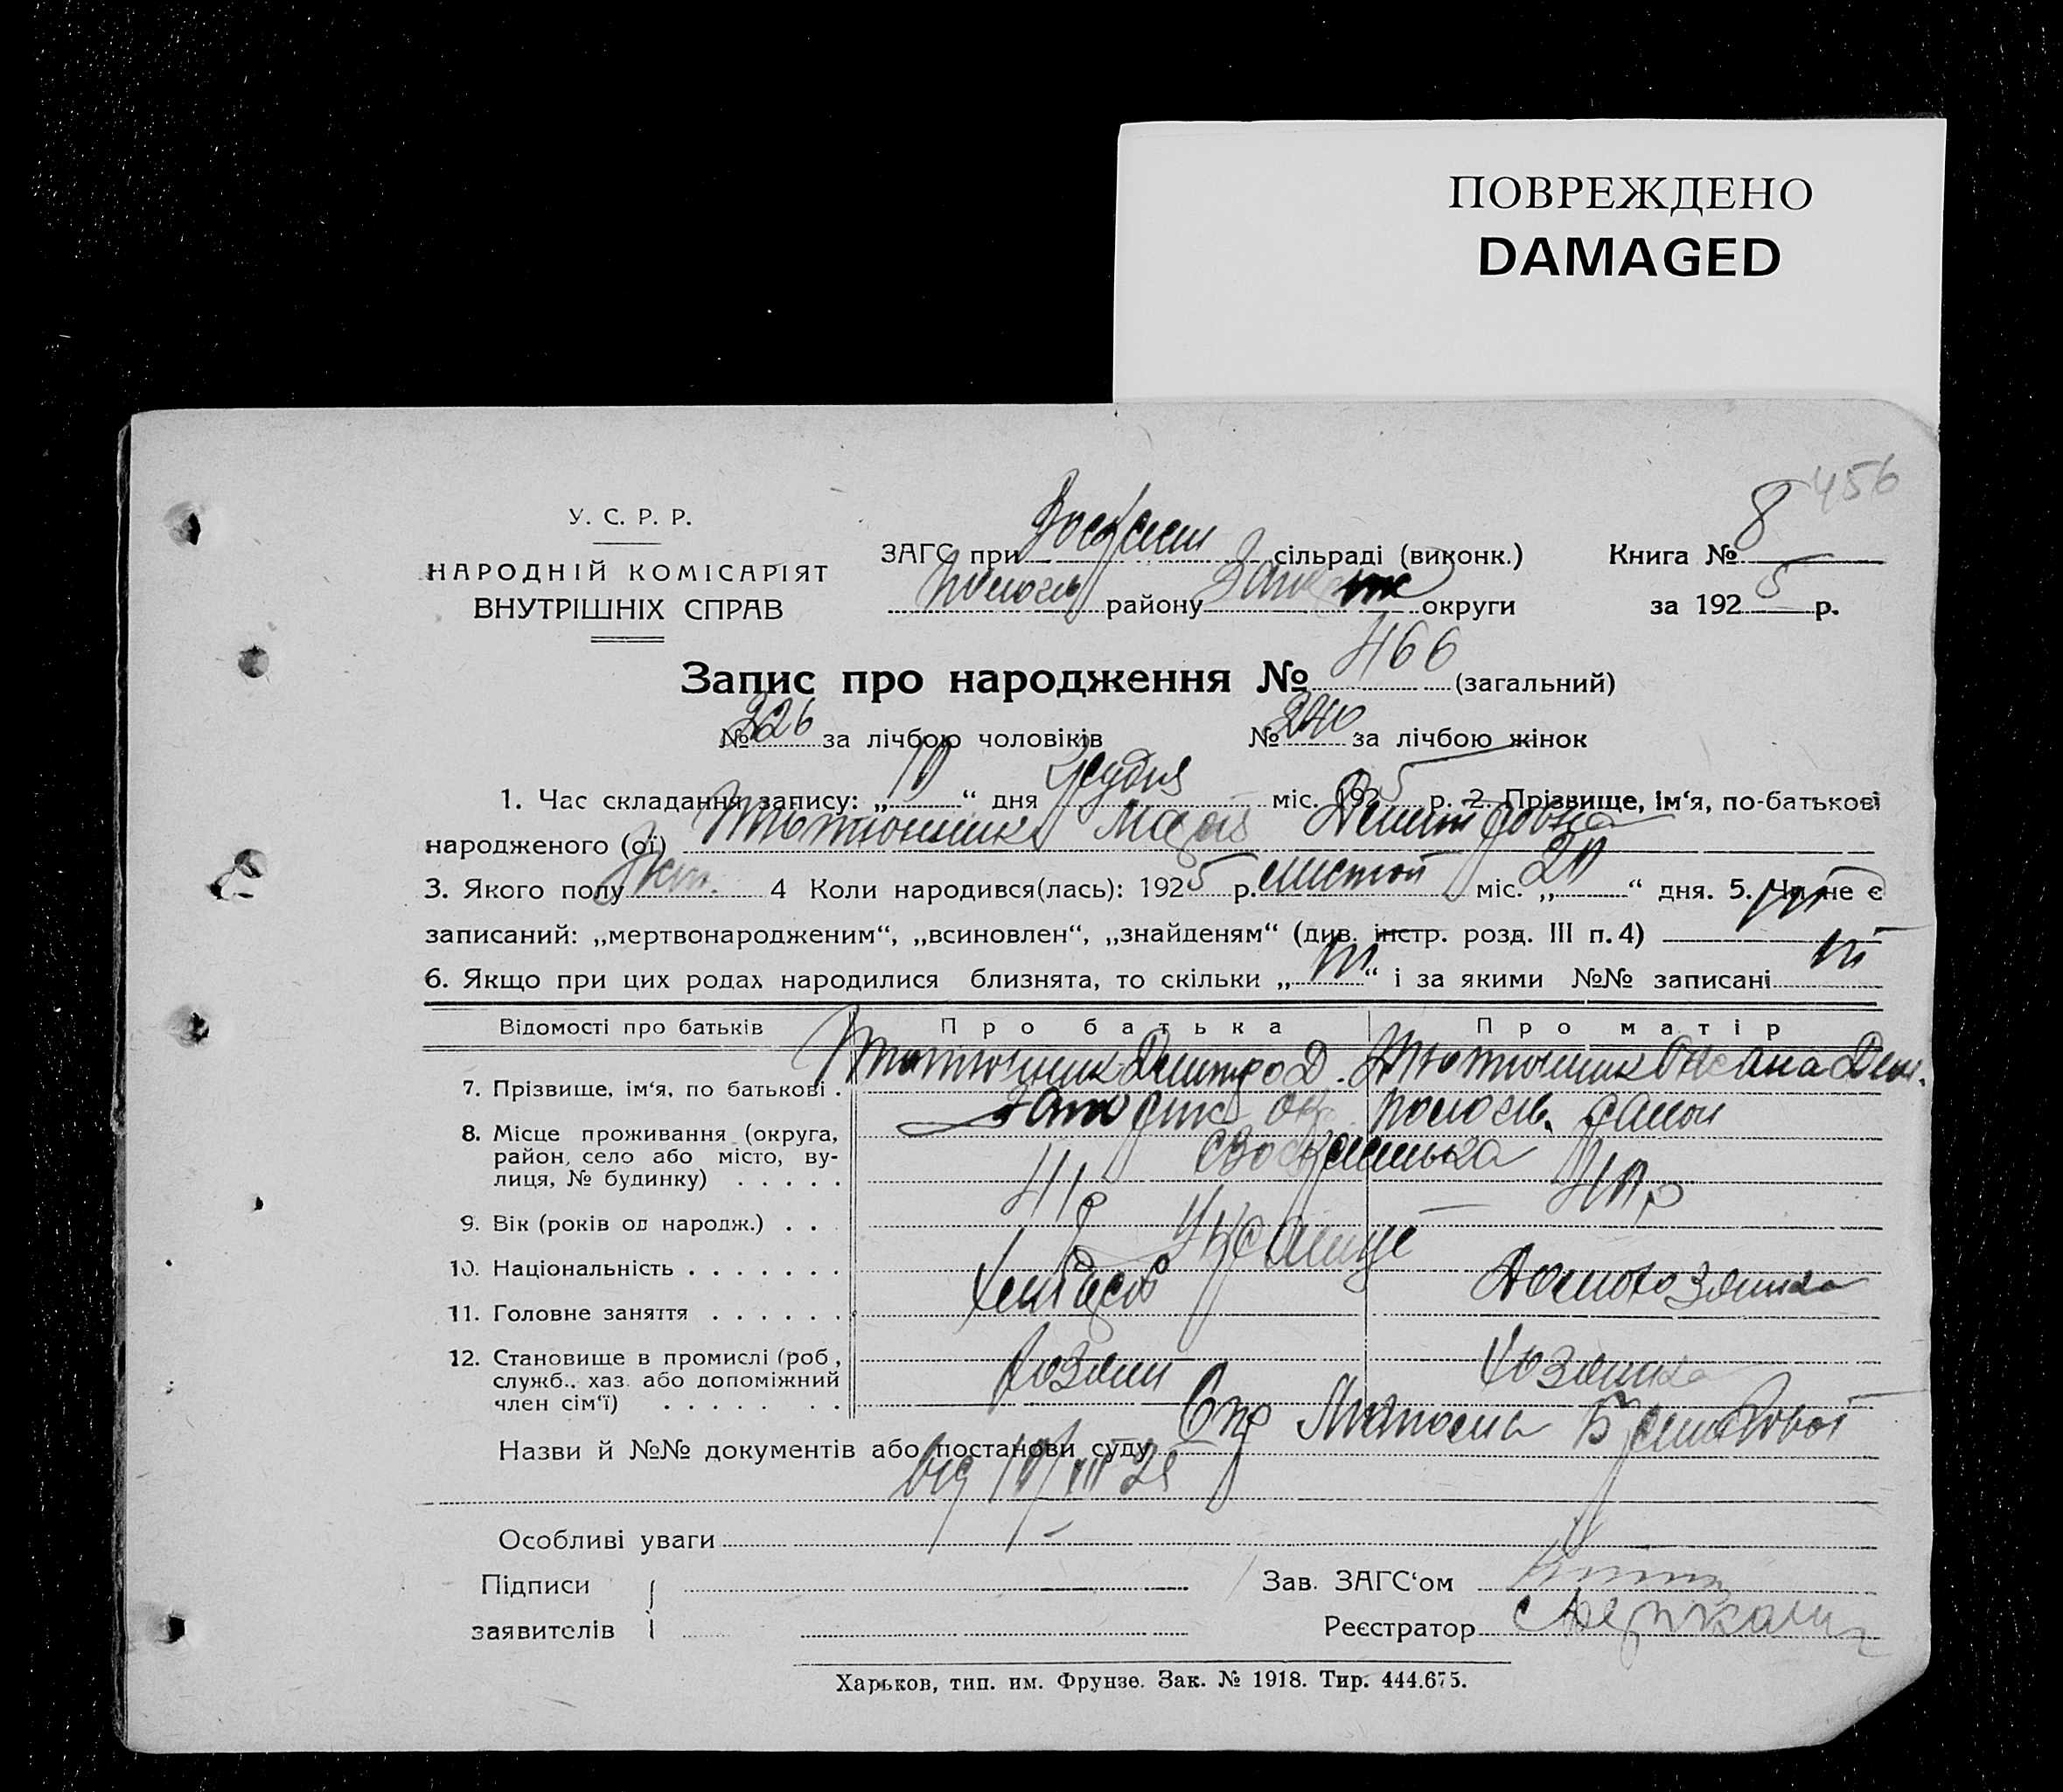 ПОВРЕЖДЕНО
DAMAGED
456
У. С. Р. Р.
НАРОДНІЙ КОМІСАРІЯТ
ВНУТРІШНІХ СПРАВ
ЗАГС при Воскресен сільраді (виконк.)
Пологів району Запоріж округи
Книга № 8
за 1925 р.
Запис про народження № 466 (загальний)
№ 226 за лічбою чоловіків № 240 за лічбою жінок
1. Час складання запису: „10“ дня Грудня міс. 1925 р. 2. Прізвище, ім‘я, по-батькові
народженого (ої) Тютюнник Марія Дмитровна
3. Якого полу жін. 4 Коли народився(лась): 1925 р. листоп міс. „20“ дня. 5. Чи не є
записаний: „мертвонародженим“, „всиновлен“, „знайденям“ (див. інстр. розд. III п. 4) ні
6. Якщо при цих родах народилися близнята, то скільки „ні“ і за якими №№ записані ні
Відомості про батьків Про батька Про матір
7. Прізвище, ім‘я, по батькові . Тютюнник Дмитро Д. Тютюнник Оксана Дем.
8. Місце проживання (округа, район, село або місто, ву-
лиця, № будинку) . . . . . Запоріж ок. пологів. район
с Воскресенька
9. Вік (років од народж.) . . . 41 р 40 р
10. Національність . . . . . . . Українці
11. Головне заняття . . . . . . хлібороб Домохозяйка
12. Становище в промислі (роб, служб., хаз. або допоміжний
член сім‘ї) . . . . . . . . хозяин хозяйка
Назви й №№ документів або постанови суду
від 10/XII 25
Особливі уваги –
Підписи
заявителів
Зав. ЗАГС‘ом
Реєстратор
Харьков, тип. им. Фрунзе. Зак. № 1918. Тир. 444.675.